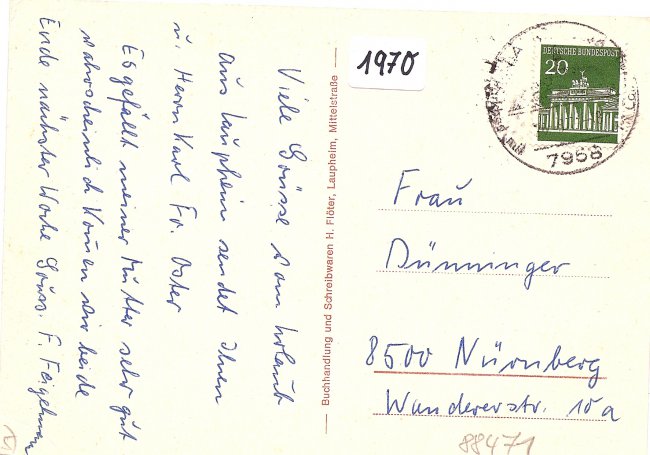 Viele Grüsse vom Urlaub
aus Laupheim sendet Ihnen
u. Herrn Karl Fr. Oster
Es gefällt meiner Mutter sehr gut
wahrscheinlich Komen wir beide
Ende nächster Woche Gruss. F. Feigelman
Buchhandlung und Schreibwaren H. Flöter, Laupheim, Mittelstraße
1970
DEUTSCHE BUNDESPOST
20
7968
Frau
Dünninger
8500 Nürnberg
Wandererstr. 10 a
88471